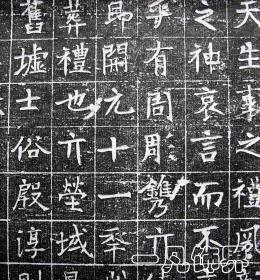 天生事之禮風
之神哀言而不
乎有周彫鐫亣
開元十一年
葬禮也亣塋域
舊墟士俗殷淳則